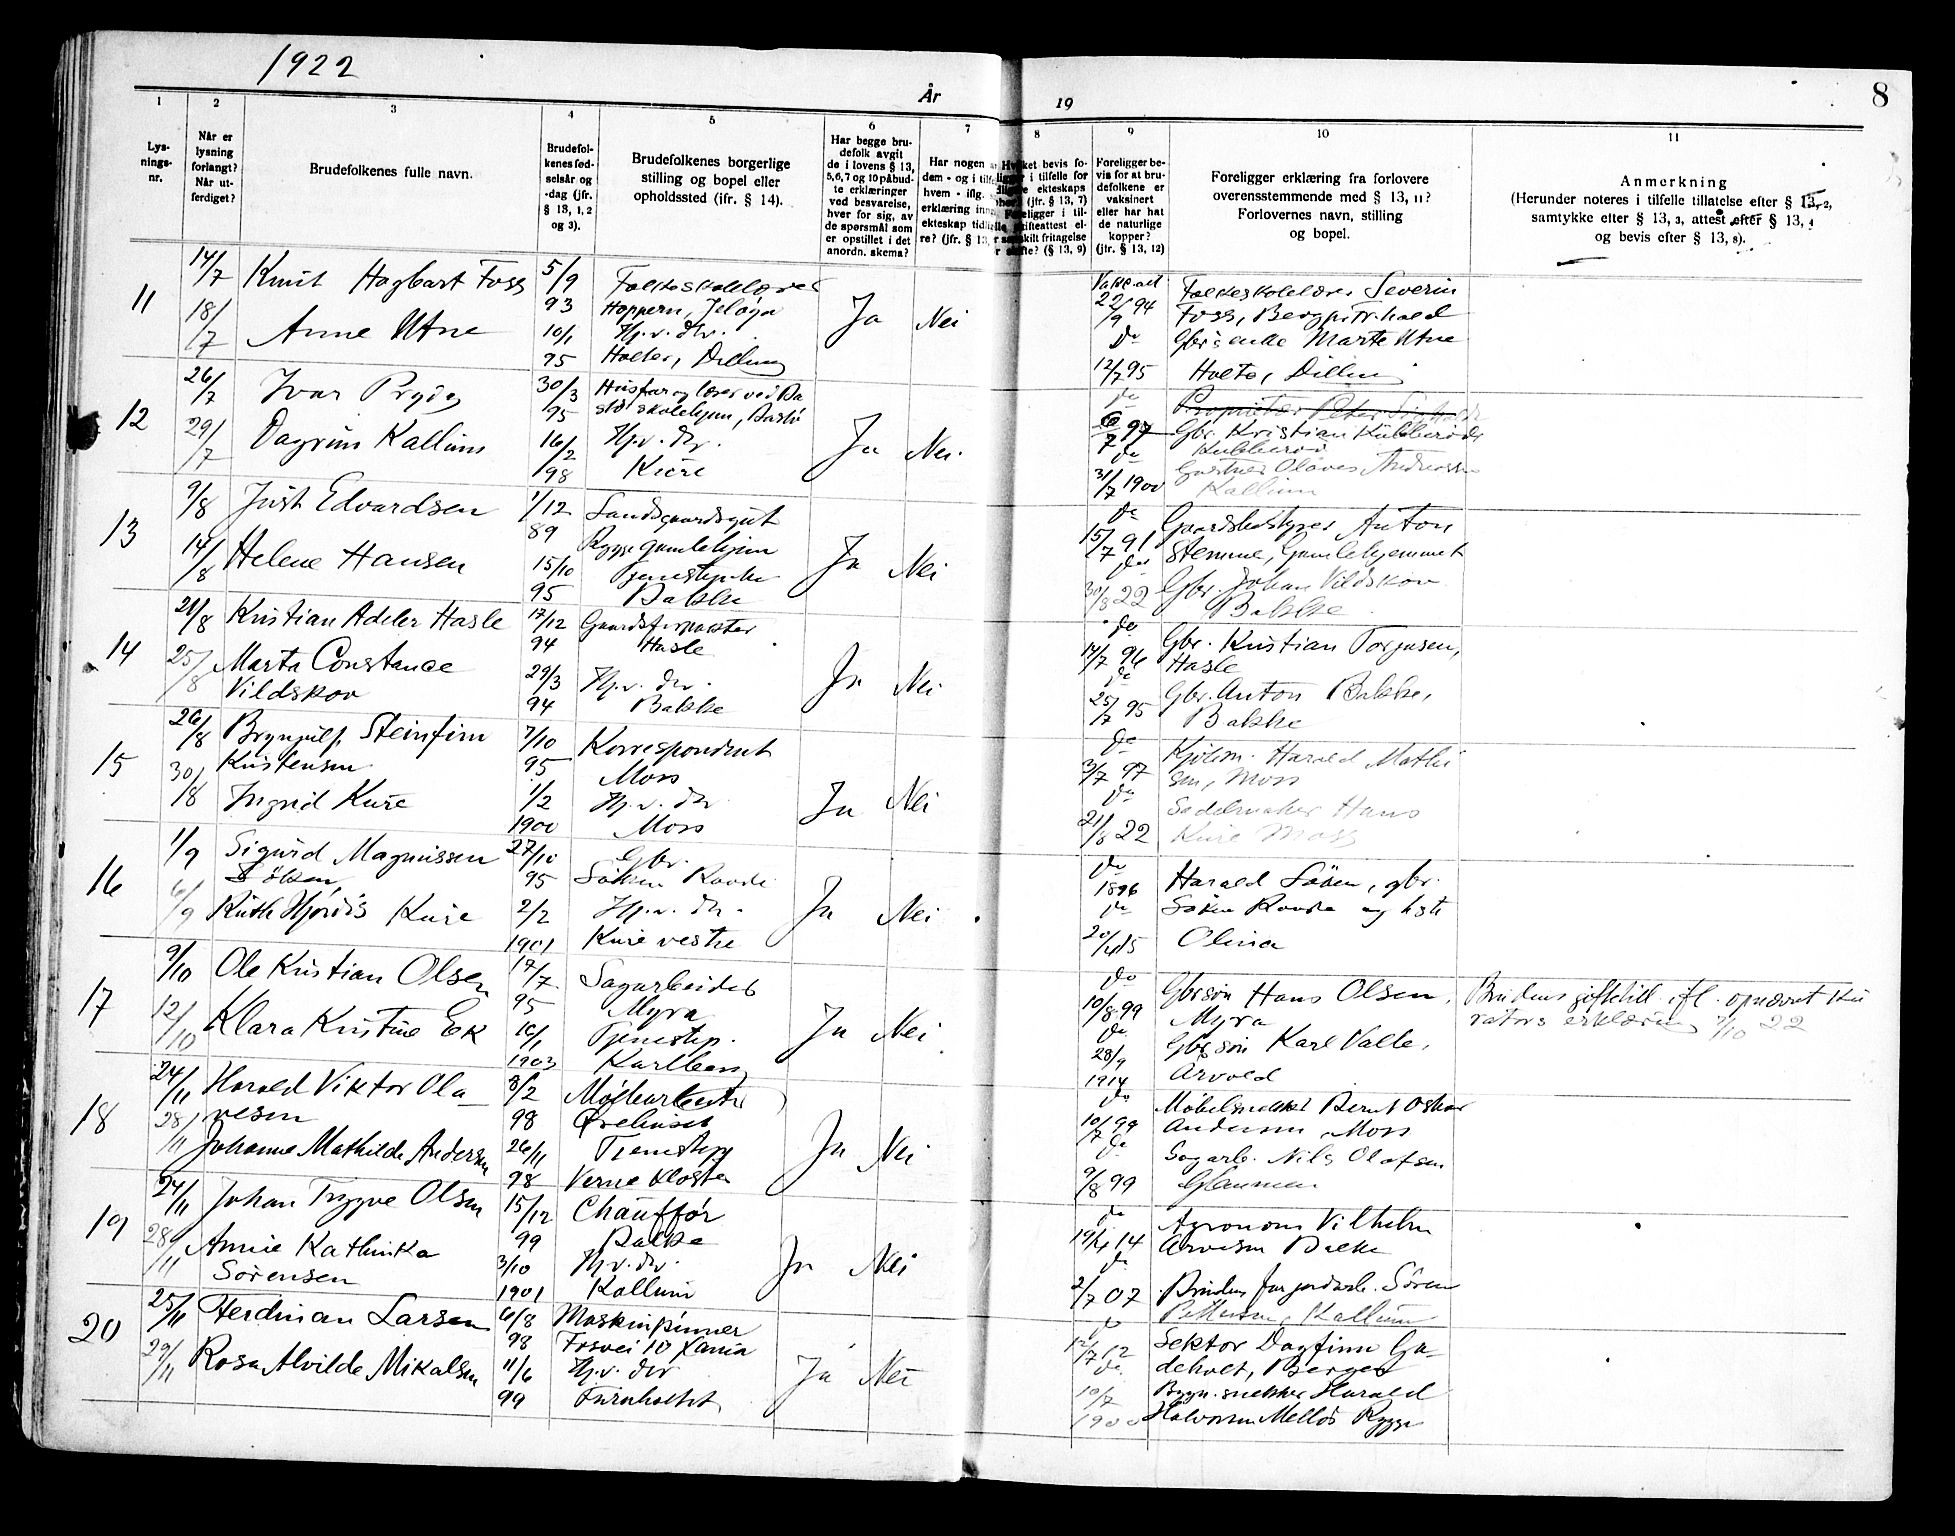 1922
År
19
8
1
2
3
4
5
6
7
8
9
10
11
Lys-
nings-
nr.
Når er
lysning
forlangt?
Når ut-
ferdiget?
Brudefolkenes fulle navn.
Brudefol-
kenes fød-
selsår og
-dag (jfr.
§ 13, 1, 2
og 3).
Brudefolkenes borgerlige
stilling og bopel eller
opholdssted (jfr. § 14).
Har begge bru-
defolk avgit
de i lovens § 13,
5, 6, 7 og 10 påbud-
te erklæringer
ved besvarelse,
hver for sig, av
de spørsmål som
er opstillet i det
anordn. skema?
Har nogen
dem - og i
hvem - iflg.
erklæring
ekteskap
re? (jfr. § 13,
bevis fo-
i tilfelle for
ekteskaps
(jfr. § 13, 7)
i til-
skifteattest el-
fritagelse
(§ 13, 9)
Foreligger be-
vis for at bru-
defolkene er
vaksinert
eller har hat
de naturlige
kopper?
(jfr. § 13, 12)
Foreligger erklæring fra forlovere
overensstemmende med § 13, 11?
Forlovernes navn, stilling
og bopel.
Anmerkning
(Herunder noteres i tilfelle tillatelse efter § 13, 2,
samtykke efter § 13, 3, attest efter § 13, 4
og bevis efter § 13, 8).
11
14/7
18/7
Knut Hagbart Foss
Anne Utne
5/9
93
10/1
95
Folkeskolelærer
Hoppern, Jeløya
Hj.v. dtr.
Holter, Dilling
Ja
Nei
Vakc.att.
22/9 94
do
12/7 95
Folkeskolelærer Severin
Foss, Berg pr. Fr.hald
Gbr.enke Marte Utne
Holte, Dilling
12
26/7
29/7
Ivar
Dagrun Kallum
30/3
95
16/2
98
Husfar og lærer ved Ba
stø skolehjem, Bastø
Hj.v. dtr.
Kure
Ja
Nei
do
97
do
31/7 1900
Proprietær Peter
Gbr. Kristian Kubberød
Kubberød
Gartner Olaves Andreassen
Kallum
13
9/8
14/8
Just Edvardsen
Helene Hansen
1/12
89
15/10
95
Rygge gamlehjem
Tjenestepike
Bakke
Ja
Nei
do
15/7 91
do
30/8 22
Gaardsbestyrer Anton
Stemme, Gamlehjemmet
Gbr. Johan Vildskov
Bakke
14
21/8
25/8
Kristian Adeler Hasle
Marta Constance
Vildskov
17/12
94
29/3
94
Gaardsforpakter
Hasle
Hj.v. dtr.
Bakke
Ja
Nei
do
14/7 96
do
25/7 95
Gbr. Kristian Torgusen,
Hasle
Gbr. Anton Bakke,
Bakke
15
26/8
30/8
Brynjulf Steinfinn
Kristensen
Ingrid Kure
7/10
95
1/2
1900
Korrespondent
Moss
Hj.v. dtr.
Moss
Ja
Nei
do
3/7 97
do
21/8 22
Kjølm. Harald Mathi
sen, Moss
Sadelmaker Hans
Kure Moss
16
1/9
6/9
Sigurd Magnussen
Søken
Ruth Hjørdis Kure
27/10
95
2/2
1901
Gbr.
Søken Raade
Hj.v. dtr.
Kure vestre
Ja
Nei
do
1896
do
Harald Søken, gbr.
Søken Raade og hstr
Olina
17
9/10
12/10
Ole Kristian Olsen
Klara Kristine Ek
17/7
95
10/1
1903
Sagarbeider
Myra
Tjenestep.
Karlberg
Ja
Nei
do
10/8 99
do
28/9
1914
Gbrsøn Hans Olsen,
Myra
Gbrsøn Karl Valle,
Årvold
Brudens giftetill. ifl. opnævnt Ku
rators erklæring 7/10 22
18
24/11
28/11
Harald Viktor Ola-
vesen
Johanne Mathilde Andersen
8/2
98
26/11
98
Møllearbeider
Ørehuset
Tjenestep
Verne Kloster
Ja
Nei
do
10/7 99
do
9/8 99
Møbelsnekker Bernt Oskar
Andersen, Moss
Sagarb. Nils Olafsen
19
24/11
28/11
Johan Trygve Olsen
Annie Kathinka
Sørensen
15/12
99
3/10
1901
Chauffør
Balke
Hj.v. dtr.
Kallum
Ja
Nei
do
19/4 14
do
2/7 07
Agronom Vilhelm
Arvesen Balke
Brudens far jordarb. Søren
Pettersen, Kallum
20
25/11
29/11
Herdman Larsen
Rosa Alvilde Mikalsen
6/8
98
11/6
99
Maskinpinner
Fosvei 10 Krania
Hj.v. dtr
Furuholtet
Ja
Nei
do
12/7 12
do
10/7
1900
Lektor Dagfinn Ga-
deholt, Bergen
Bygn.snekker Harald
Halvorsen Melløs Rygge